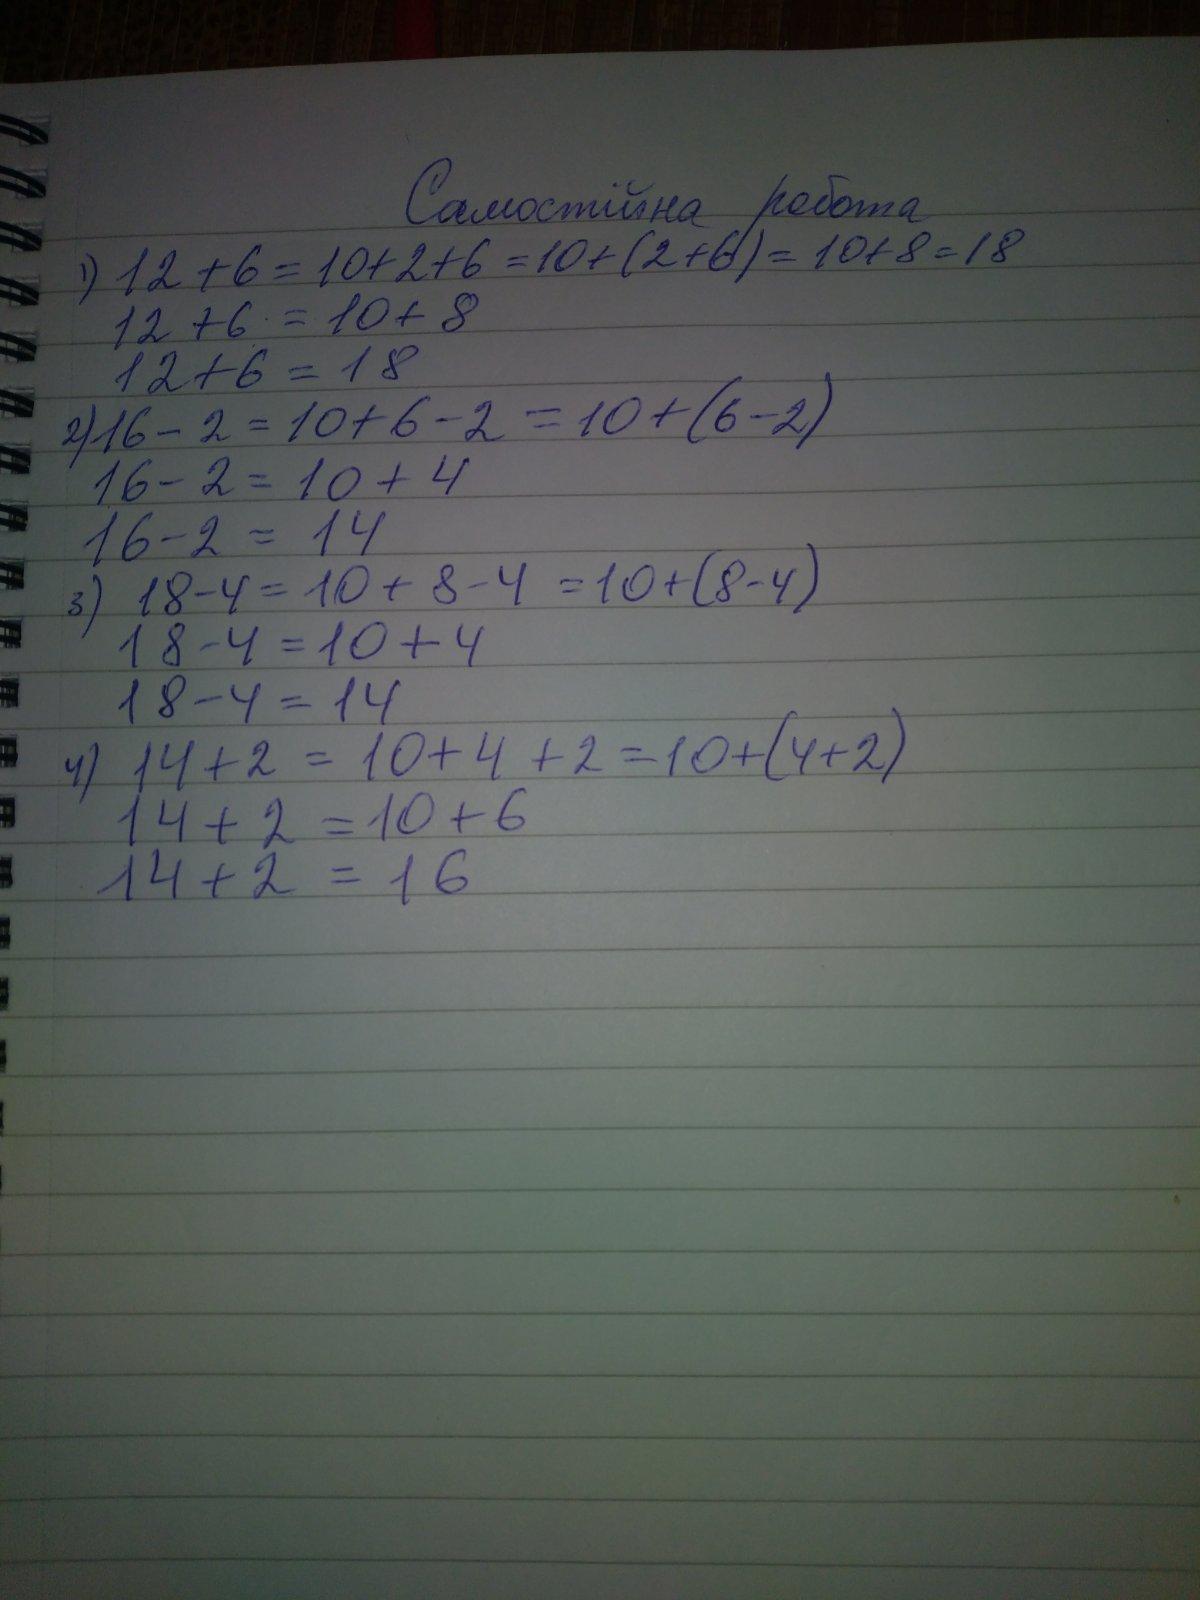 Самостійна робота
1) 12 + 6 = 10 + 2 + 6 = 10 + (2 + 6) = 10 + 8 = 18
12 + 6 = 10 + 8
12 + 6 = 18
2) 16 - 2 = 10 + 6 - 2 = 10 + (6 - 2)
16 - 2 = 10 + 4
16 - 2 = 14
3) 18 - 4 = 10 + 8 - 4 = 10 + (8 - 4)
18 - 4 = 10 + 4
18 - 4 = 14
4) 14 + 2 = 10 + 4 + 2 = 10 + (4 + 2)
14 + 2 = 10 + 6
14 + 2 = 16